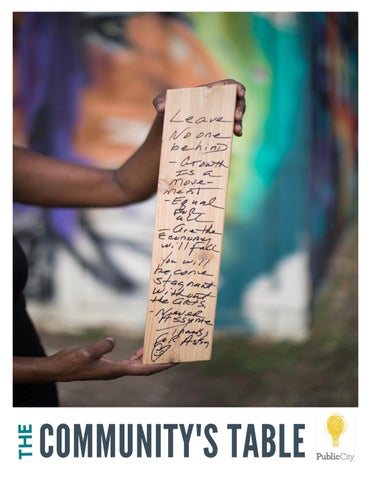 Leave
No one
behind
- Growth
Is a
move-
ment
- Equal
for
all
the
Economy
will fall
You will
become
stagnant
without
the arts
- Never
Assume
Thanks
for
THE COMMUNITY'S TABLE
PublicCity